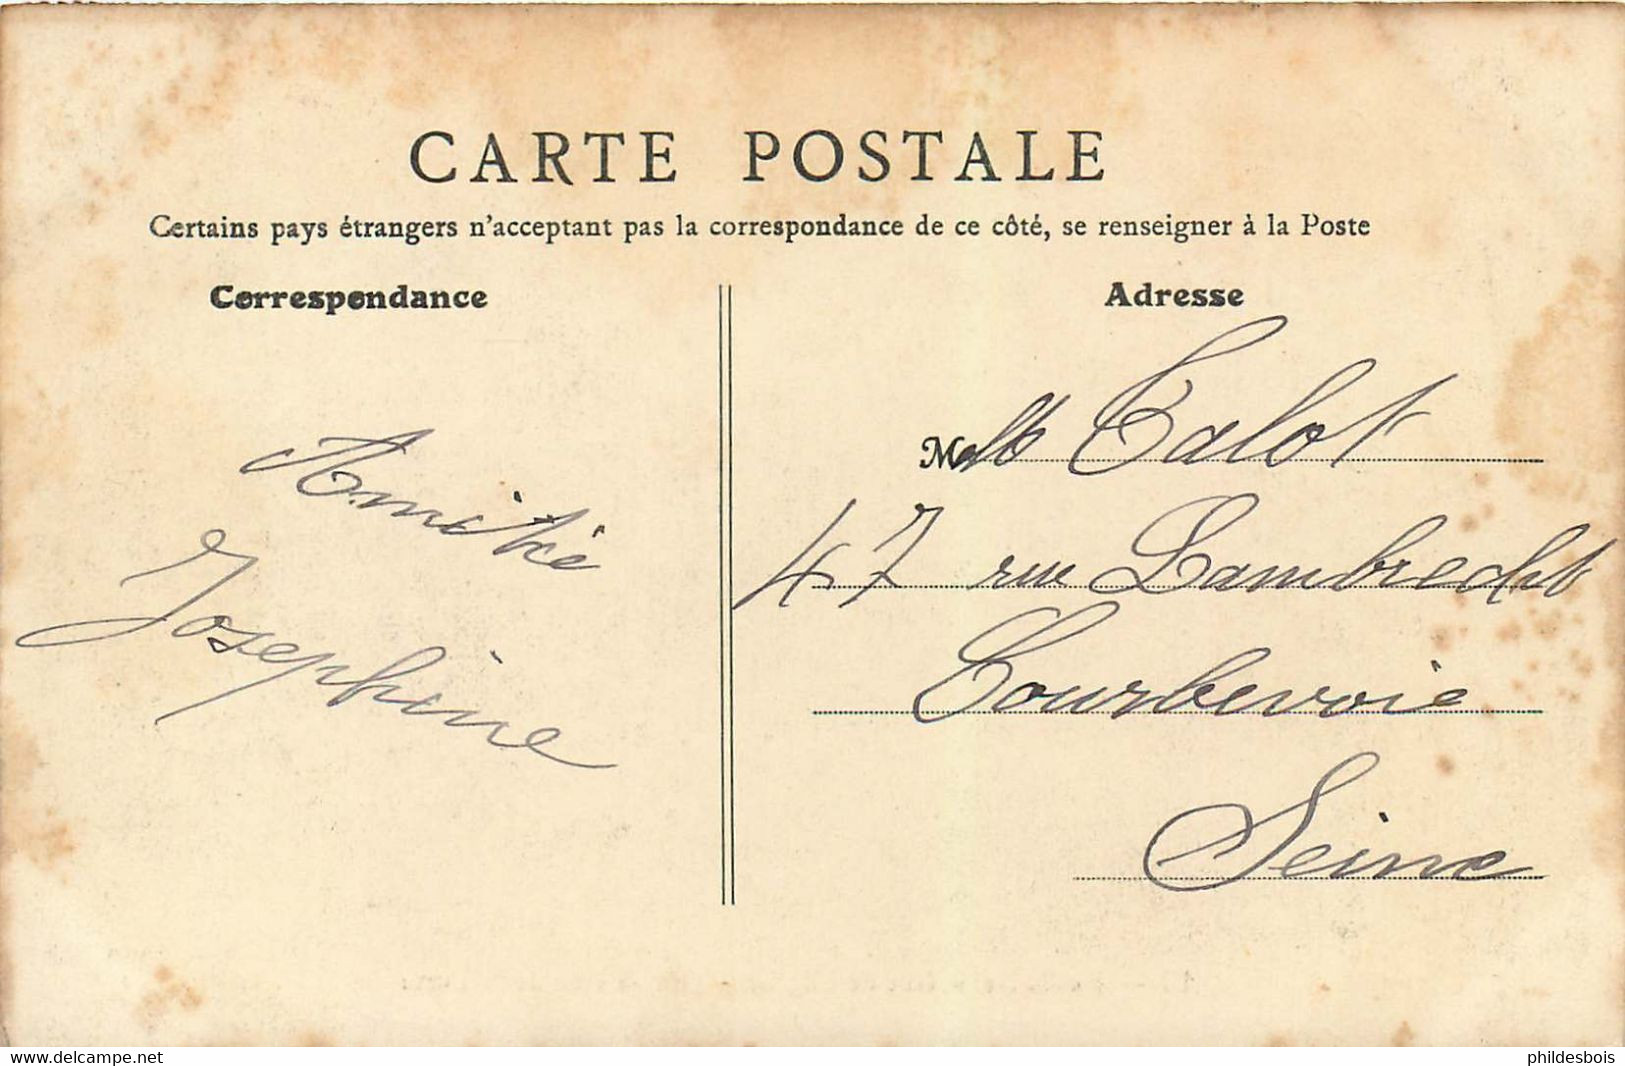 CARTE POSTALE
Certains pays étrangers n'acceptant pas la correspondance de ce côté, se renseigner à la Poste
Correspondance
Amitié
Josephine
Adresse
Melle Talot
47 rue Lambrecht
Courbevoie
Seine
www.delcampe.net
phildesbois